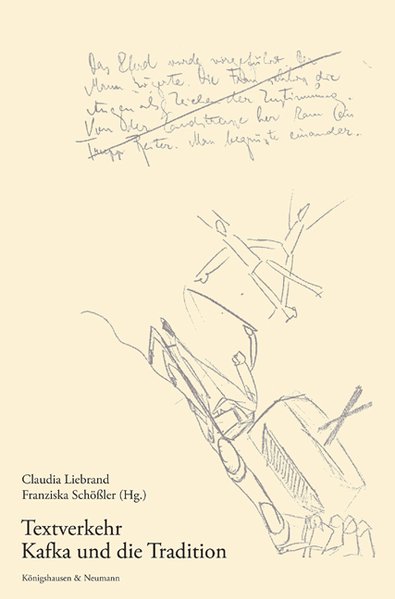 Das Pferd wurde vorgeführt. Der
Mann zögerte. Die Frau die
Augen als Zeichen der Zustimmung.
Von der Landstrasse her kam ein
Trupp Reiter. Man begrüßte einander.
Claudia Liebrand
Franziska Schößler (Hg.)
Textverkehr
Kafka und die Tradition
Königshausen & Neumann